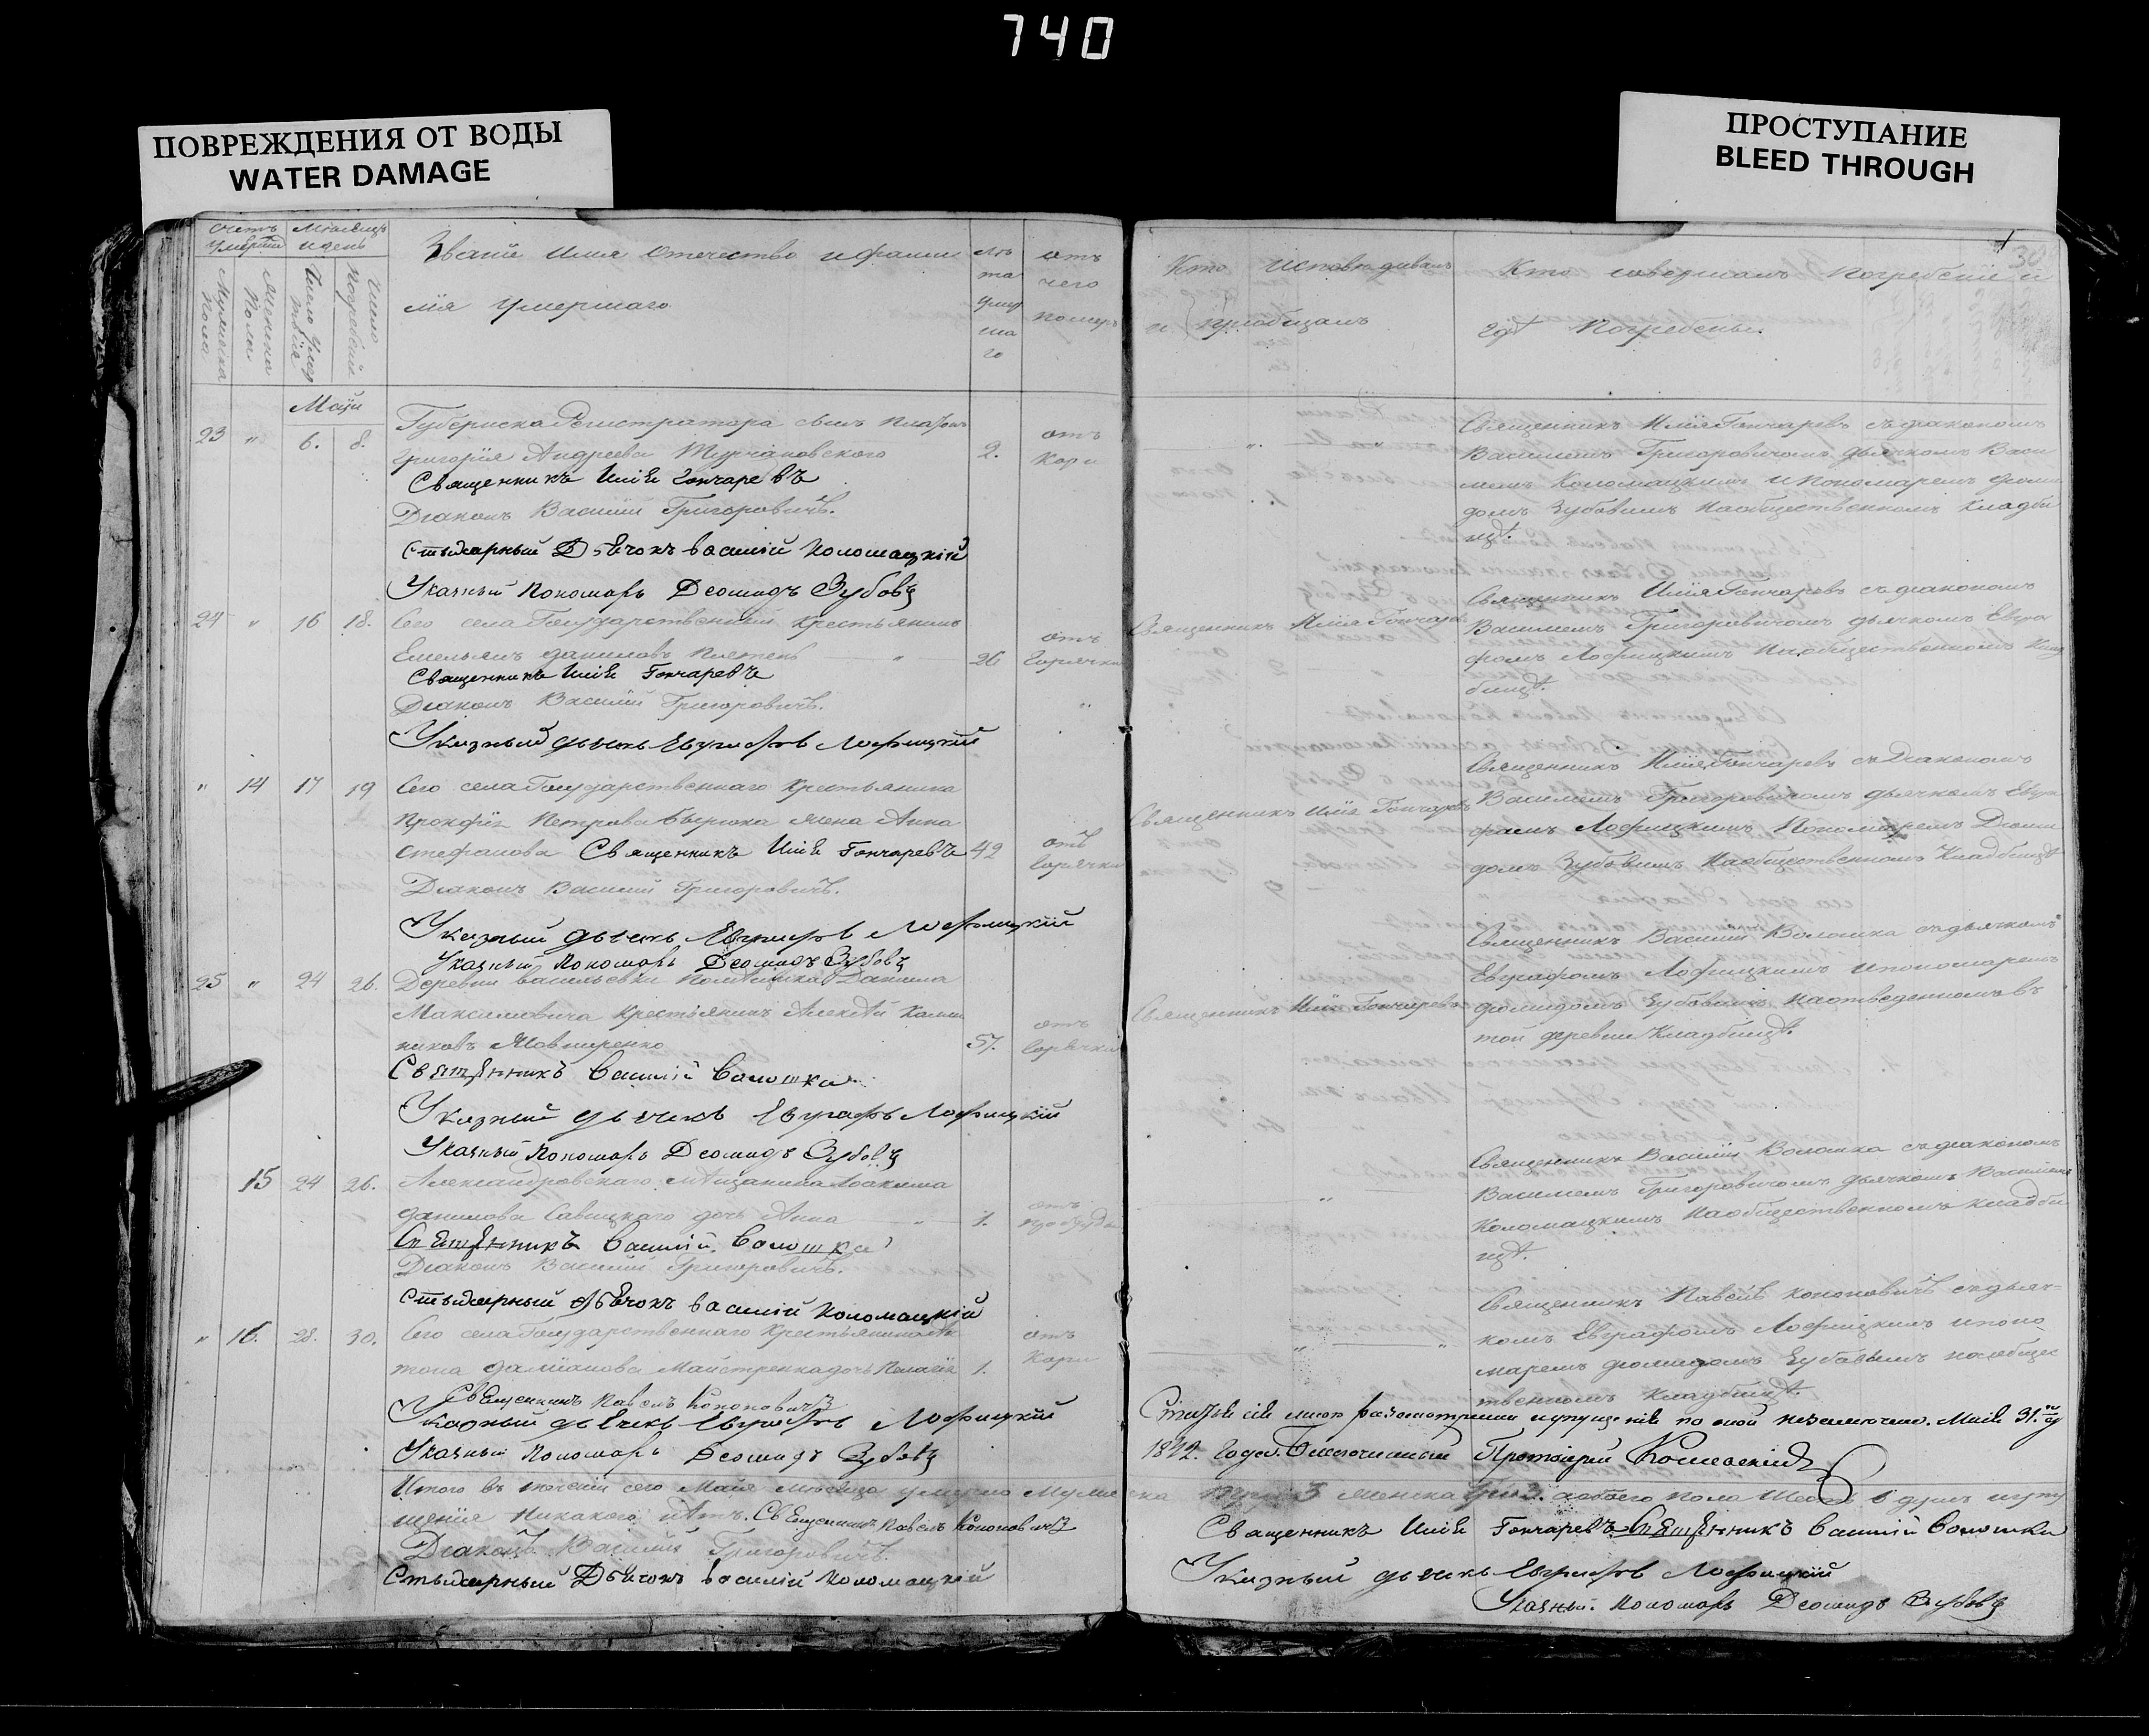 740
ПОВРЕЖДЕНИЯ ОТ ВОДЫ
WATER DAMAGE
ПРОСТУПАНИЕ
BLEED THROUGH
счетъ умершихъ
Мѣсяцъ и день
Мужеска пола
Женска пола
Число умертвія
Число погребенія
Званіе имя отечество и фами
лія умершаго
лѣ
та
умер
ша
го
отъ
чего
померъ
Маїя
23 " 6. 8.
Губернска Регистратора сынъ
Григорія Андреева Турчановского 2. отъ кори
Священникъ Илія Гончаревъ
Діаконъ Василій Григоровичъ.
Стихарный Дьячокъ Василій Коломацкій
Указный Пономарь Деомидъ Зубовъ
24 " 16 18. Сего села Государственный крестьянинъ
Емельянъ Даниловъ 26 отъ горячки
Священникъ Илія Гончаревъ
Діаконъ Василій Григоровичъ.
Указный дьячекъ Евграфъ Лофицкій
" 14 17 19 Сего села Государственнаго Крестьянина
Прокофія Петрова жена Анна
Стефанова 42 отъ горячки
Священникъ Илія Гончаревъ
Діаконъ Василій Григоровичъ.
Указный дьячекъ Евграфъ Лофицкій
Указный Пономарь Деомидъ Зубовъ
25 " 24 26. Деревни Васильевки Помѣщика Данила
Максимовича Крестьянинъ Алексѣй
57. отъ горячки
Священникъ Василій Волошка
Указный дьячекъ Евграфъ Лофицкій
Указный Пономарь Деомидъ Зубовъ
15 24 26. Александровскаго мѣщанина Іоакима
Данилова Савицкаго дочь Анна 1. отъ
Священникъ Василій Волошка
Діаконъ Василій Григоровичъ.
Стихарный Дьячокъ Василій Коломацкій
" 16. 28. 30. Сего села Государственнаго Крестьянина
Даміанова Майстренка дочь Пелагія 1. отъ кори
Священникъ Павелъ Кононовичъ
Указный дьячекъ Евграфъ Лофицкій
Указный Пономарь Деомидъ Зубовъ
Итого въ теченіи сего Маія мѣсяца умерло Муже
щенія никакого нѣтъ. Священникъ Павелъ Кононовичъ
Діаконъ Василій Григоровичъ.
Стихарный Дьячокъ Василій Коломацкій
30
Кто исповѣдывалъ
и пріобщалъ
Кто совершалъ погребеніе и
гдѣ погребены.
Священникъ Илія Гончаревъ съ діакономъ
Василіемъ Григоровичомъ дьячкомъ Васи
ліемъ Коломацкимъ и пономаремъ Діоми
домъ Зубовымъ на общественномъ кладби
щѣ.
Священникъ Илія Гончаревъ
Священникъ Илія Гончаревъ съ діакономъ
Василіемъ Григоровичомъ дьячкомъ Евгра
фомъ Лофицкимъ на общественномъ клад
бищѣ.
Священникъ Илія Гончаревъ
Священникъ Илія Гончаревъ съ Діакономъ
Василіемъ Григоровичомъ дьячкомъ Евгра
фомъ Лофицкимъ Пономаремъ Діоми
домъ Зубовымъ на общественномъ Кладбищѣ
Священникъ Илія Гончаревъ
Священникъ Василій Волошка съ дьячкомъ
Евграфомъ Лофицкимъ и пономаремъ
Діомидомъ Зубовымъ на отведенномъ въ
той деревни Кладбищѣ.
Священникъ Василій Волошка съ діакономъ
Василіемъ Григоровичомъ дьячкомъ Василіемъ
Коломацкимъ на общественномъ кладби
щѣ.
Священникъ Павелъ Кононовичъ съ дьяч-
комъ Евграфомъ Лофицкимъ и поно
маремъ Діомидомъ Зубовымъ на общес
твенномъ кладбищѣ.
Маія 31.
1842. Года. Благочинный Протоіерей
ска три 3 женска три 3. обоего пола шесть 6 душъ
Священникъ Илія Гончаревъ Священникъ Василій Волошка
Указный дьячекъ Евграфъ Лофицкій
Указный Пономарь Деомидъ Зубовъ